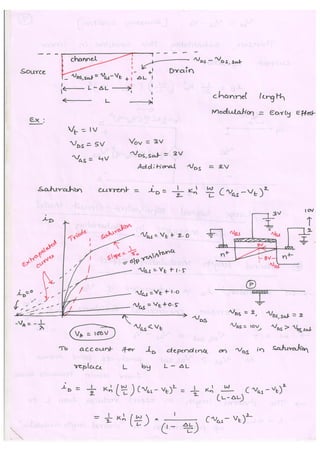 channel
v_DS - v_DS,sat
Source
v_DS,sat = v_GS - V_t
ΔL
Drain
L - ΔL
L
channel length
Modulation = Early Effect
Ex:
V_t = 1V
V_DS = 5V
V_OV = 3V
V_GS = 4V
V_DS,sat = 3V
Additional v_DS = 2V
Saturation current = i_D = 1/2 K_n' W/L (v_GS - V_t)²
i_D
Triode
Saturation
v_GS = V_t + 2.0
3V
10V
Extrapolated curves
slope = 1/r_o
= o/p resistance
v_GS = V_t + 1.5
n+
n+
i_D = 0
v_GS = V_t + 1.0
v_GS = V_t + 0.5
P
-V_A = -1/λ
V_A = 100V
v_GS < V_t
v_DS
V_DS = 10V, V_DS > V_DS,sat
To account for i_D depending on v_DS in saturation
replace L by L - ΔL
i_D = 1/2 K_n' (W/L) (v_GS - V_t)² = 1/2 K_n' W/(L-ΔL) (v_GS - V_t)²
= 1/2 K_n' (W/L) · 1/(1 - ΔL/L) (v_GS - V_t)²